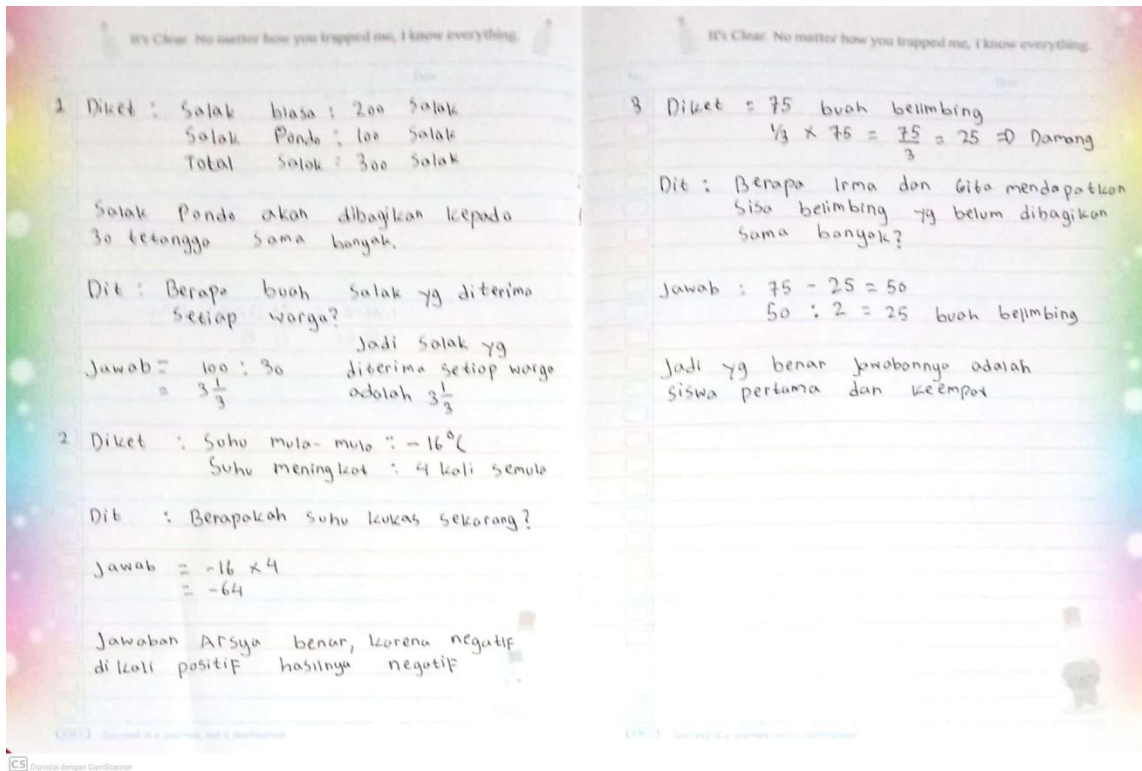 It's Clear. No matter how you trapped me, I know everything.
1 Diket : Salak biasa : 200 Salak
Salak Pondo : 100 Salak
Total Salak : 300 Salak
Salak Pondo akan dibagikan kepada
30 tetangga sama banyak.
Dit : Berapa buah salak yg diterima
setiap warga?
Jawab = 100 : 30
= 3 1/3
Jadi salak yg
diterima setiap warga
adalah 3 1/3
2 Diket : Suhu mula-mula : -16°C
Suhu meningkat : 4 kali semula
Dit : Berapakah suhu kulkas sekarang?
Jawab = -16 x 4
= -64
Jawaban Arsya benar, karena negatif
di kali positif hasilnya negatif
It's Clear. No matter how you trapped me, I know everything.
3 Diket = 75 buah belimbing
1/3 x 75 = 75/3 = 25 => Damang
Dit : Berapa Irma dan Gita mendapatkan
sisa belimbing yg belum dibagikan
sama banyak?
Jawab : 75 - 25 = 50
50 : 2 = 25 buah belimbing
Jadi yg benar jawabannya adalah
siswa pertama dan keempat
CS Dipindai dengan CamScanner